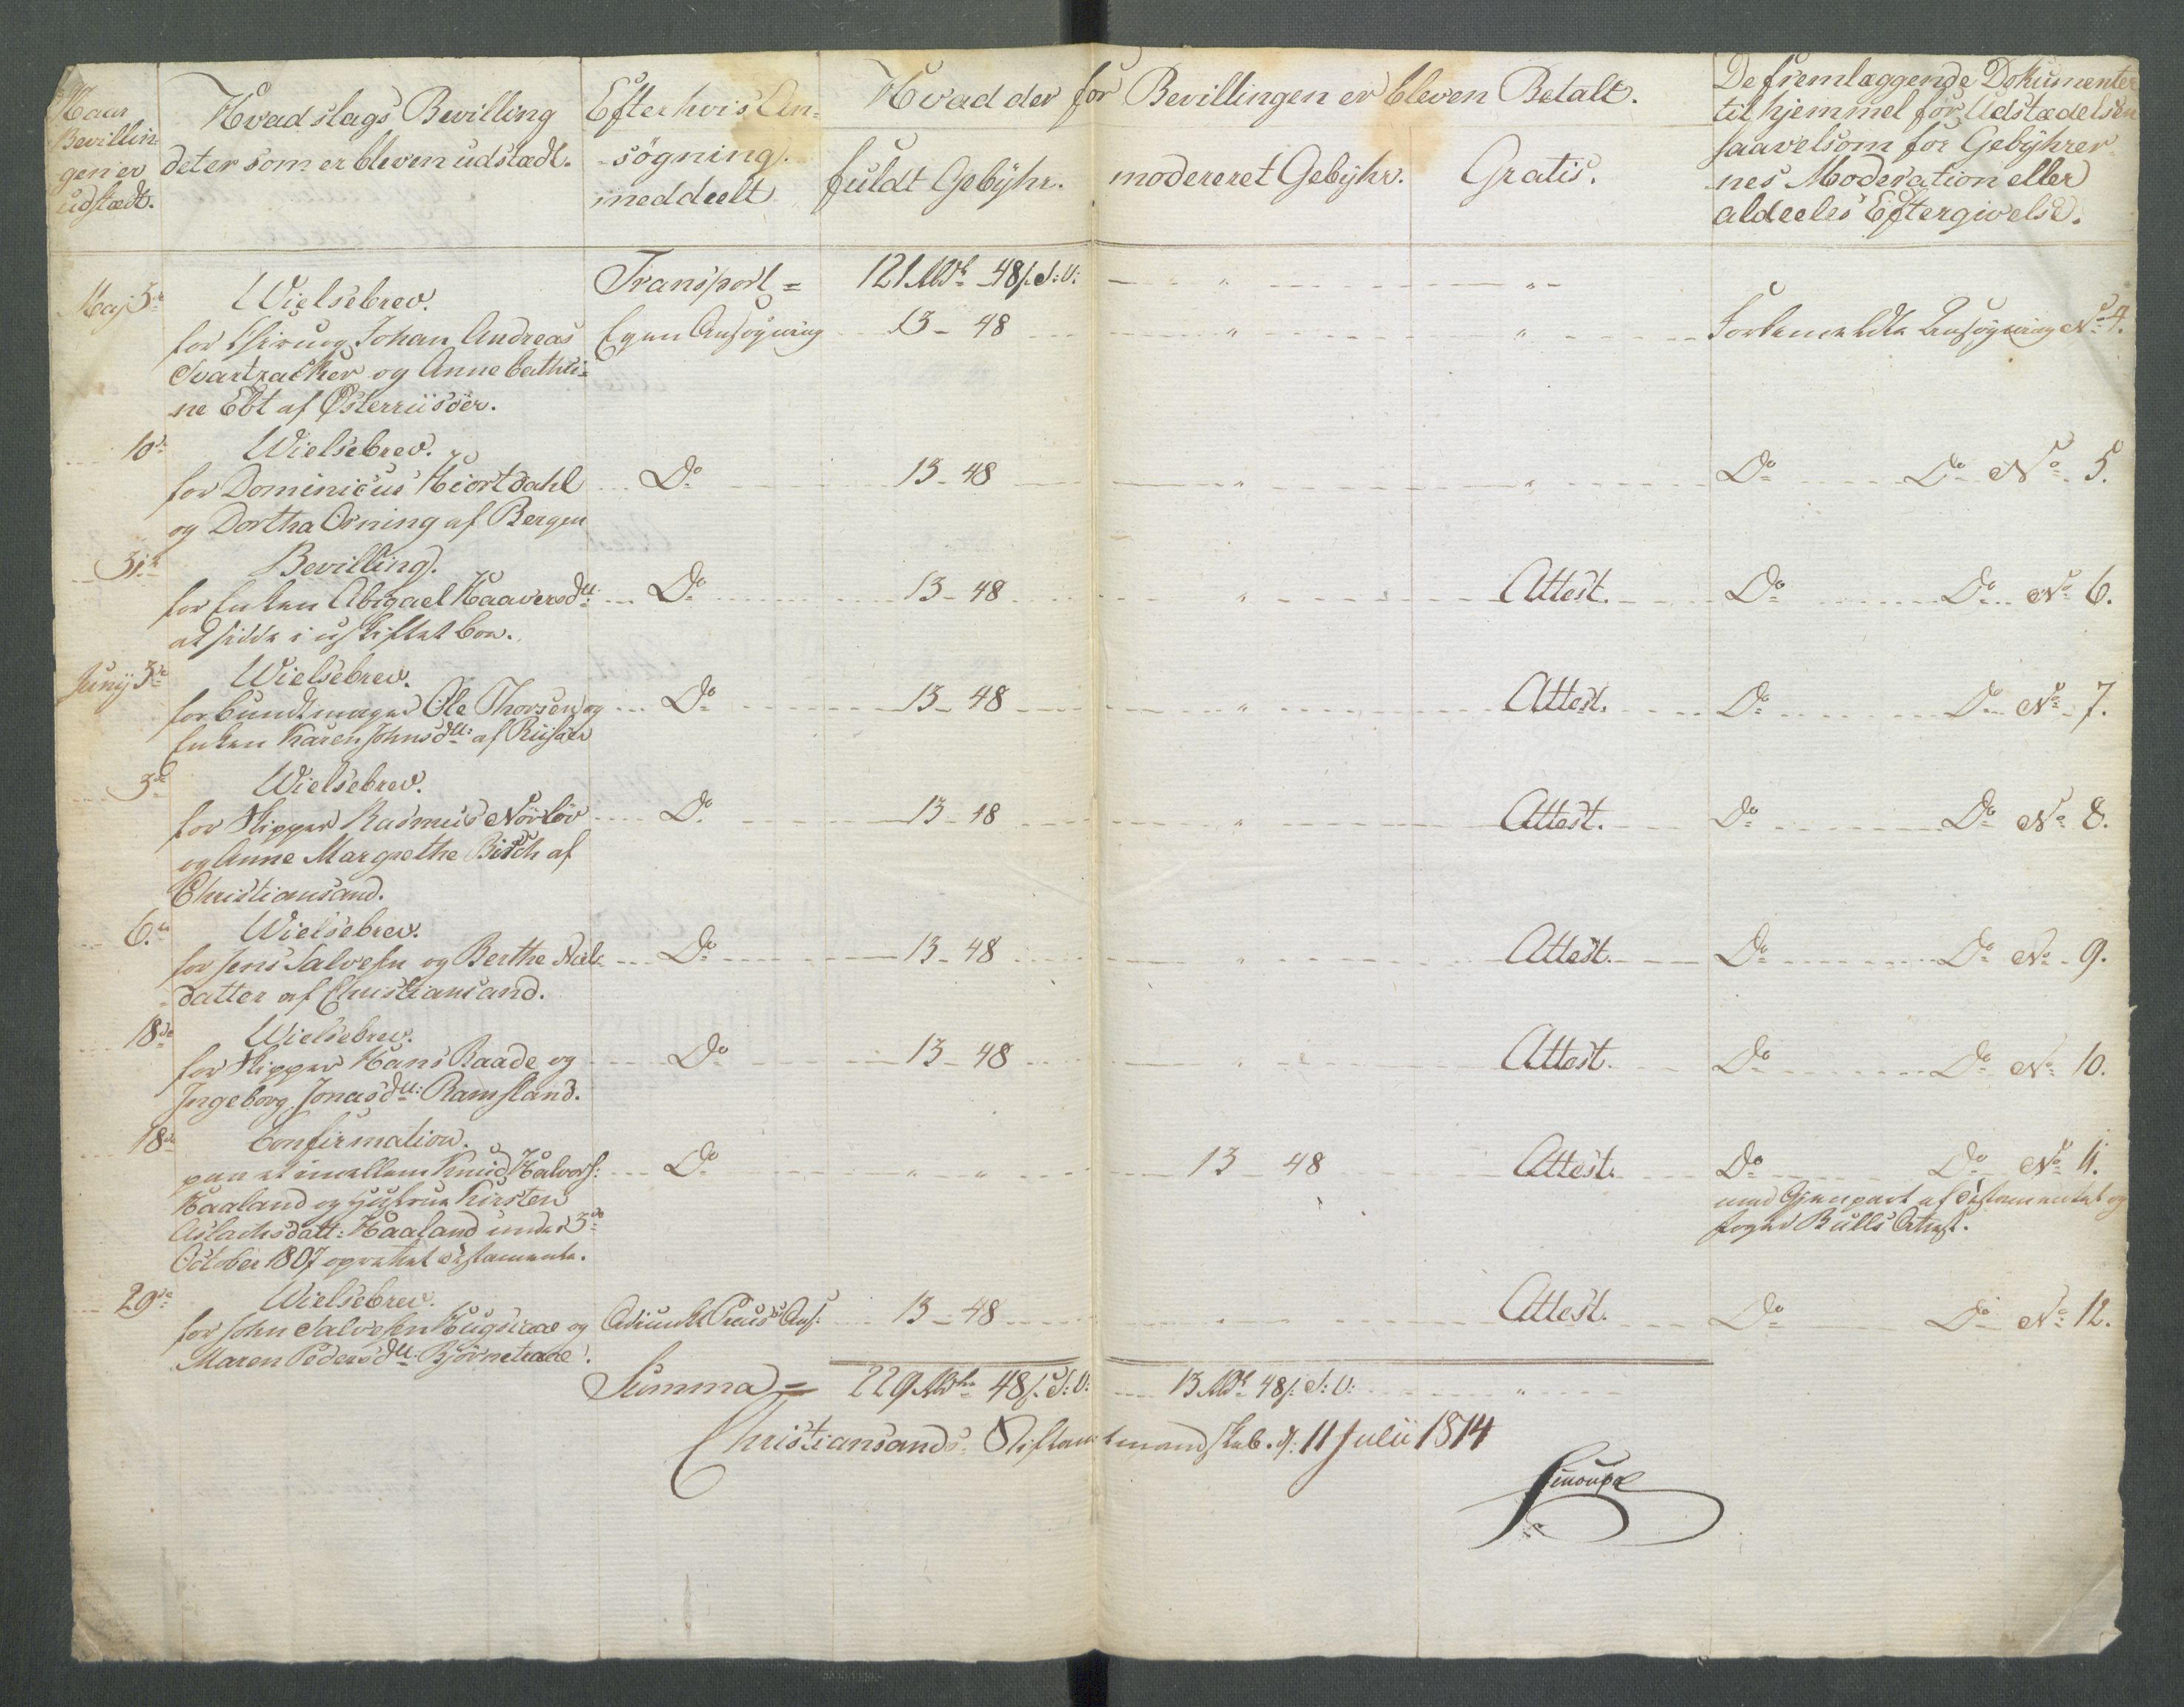 Naar
Bevillin-
gen er
udstædt.
Hvad slags Bevilling
det er som er bleven udstædt.
Efter hvis An-
søgning
meddeelt
Hvad der for Bevillingen er bleven Betalt.
fuldt Gebÿhr.
modereret Gebÿhr.
Gratis.
De fremlæggende Dokumenter
til hjemmel for Udstædelsen
saavelsom for Gebÿhrer-
nes Moderation eller
aldeeles Eftergivelse.
Transport = 121 Rbd 48 s. S: V: " "
Maj 3de Wielsebrev.
for Chirurg Johan Andreas Egen Ansøgning 13 - 48 " " Forbemeldte Ansøgning No 4.
Svartzacker og Anne Cathri-
ne Ebt af Østerriisöer.
10de Wielsebrev.
for Dominicus Hiortdahl Do 13 - 48 " " Do Do No 5.
og Dortha Orning af Bergen
31te Bevilling.
for Enken Abigael Haaversdtr Do 13 - 48 " Attest. Do Do No 6.
at sidde i uskiftet boe.
Junÿ 3de Wielsebrev.
for bundtmager Ole Thorsen og Do 13 - 48 " Attest. Do Do No 7.
Enken Karen Johnsdtr: af Riisøer
3de Wielsebrev.
for Skipper Rasmus Nörlöv Do 13 - 48 " Attest. Do Do No 8.
og Anne Margrethe Birch af
Christiansand.
6te Wielsebrev.
for Jens Salvesen og Berthe Niels- Do 13 - 48 " Attest. Do Do No 9.
datter af Christiansand.
18de Wielsebrev.
for Skipper Hans Baade og Do 13 - 48 " Attest. Do Do No 10.
Ingeborg Jonasdtr: Ramsland.
18de Confirmation.
paa et imellem Knud Halvors: Do " " 13 48 Attest. Do Do No 11.
Haaland og Hustrue Kirsten
med Gjenpart af Testamentet og
Aslachsdatt: Haaland under 3de
foged Bulls Attest.
October 1807 oprettet Testamente.
29de Wielsebrev.
for John Salvesen og 13 - 48 " Attest. Do Do No 12.
Maren Pedersdtr
Summa = 229 Rbd 48 s. S: V: 13 Rbd 48 s. S: V: "
Christiansands Stiftamtmandskab. d: 11 Julii 1814